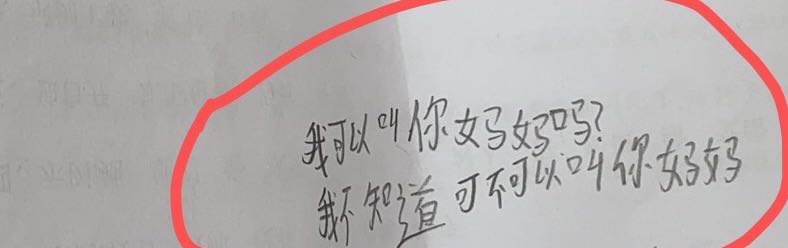 我可以叫你妈妈吗?
我不知道可不可以叫你妈妈